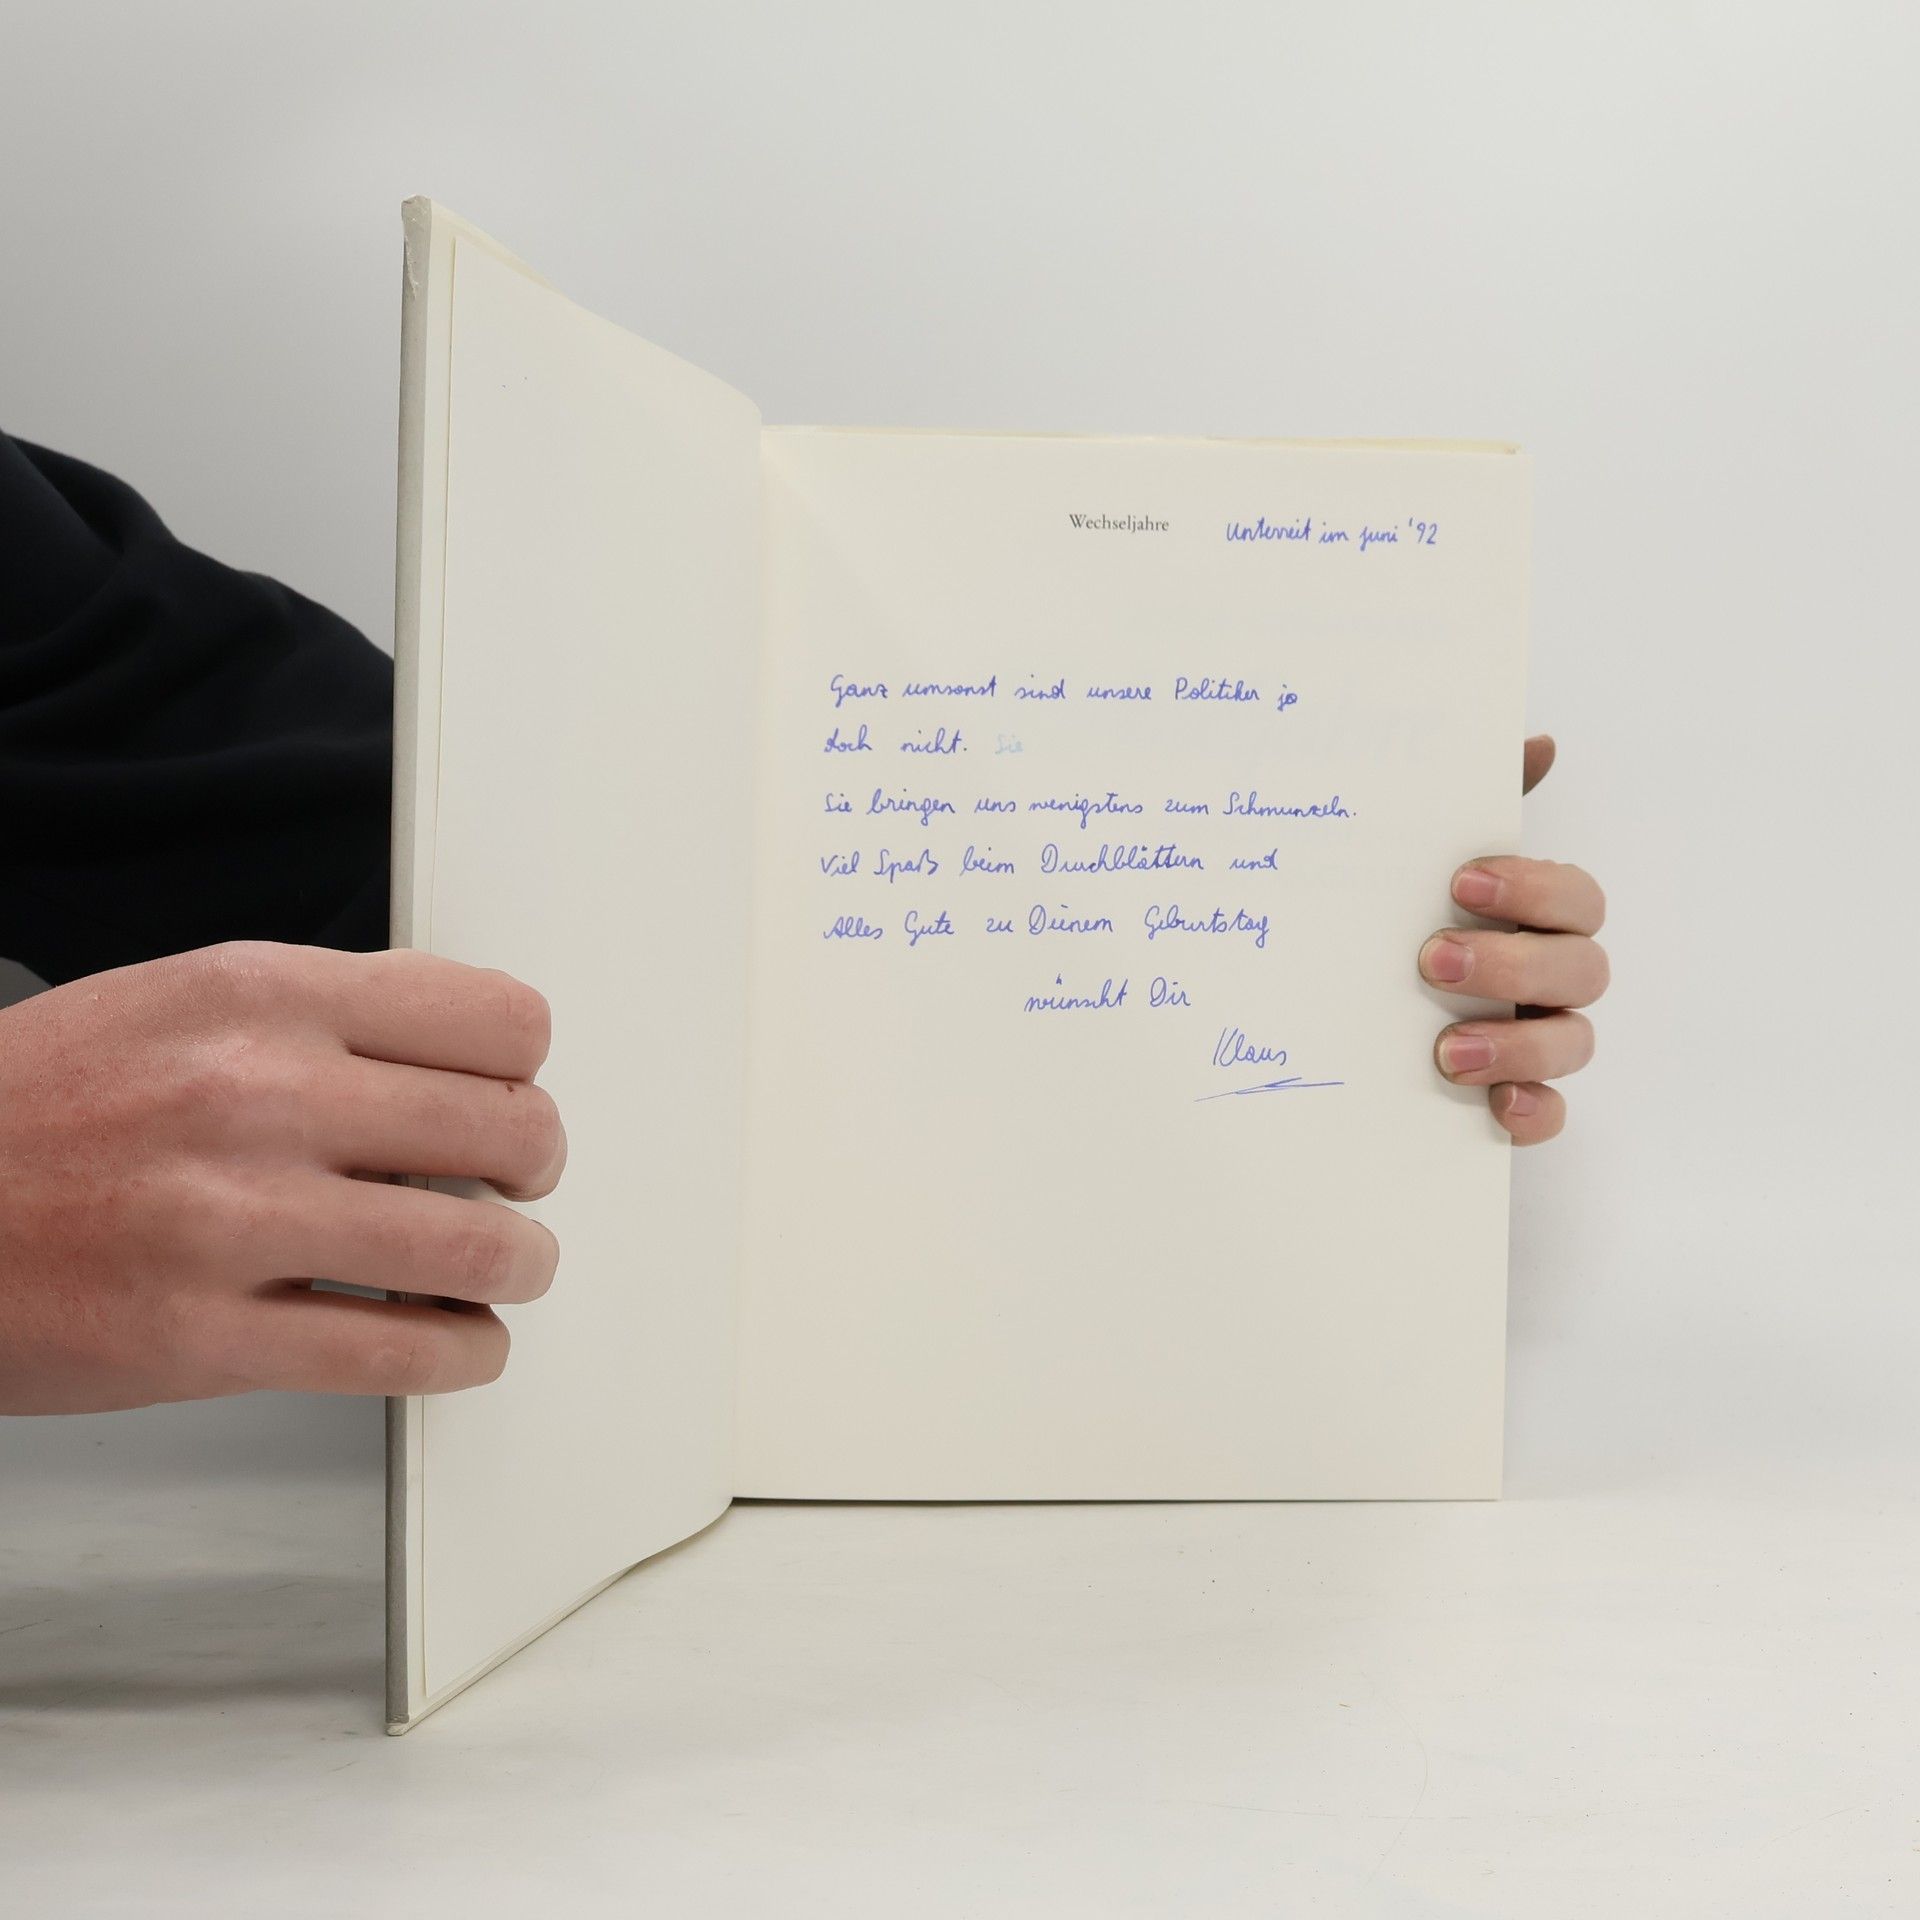 Wechseljahre
Unterreit im Juni '92
Ganz umsonst sind unsere Politiker ja
doch nicht. Sie
Sie bringen uns wenigstens zum Schmunzeln.
Viel Spaß beim Durchblättern und
Alles Gute zu Deinem Geburtstag
wünscht Dir
Klaus